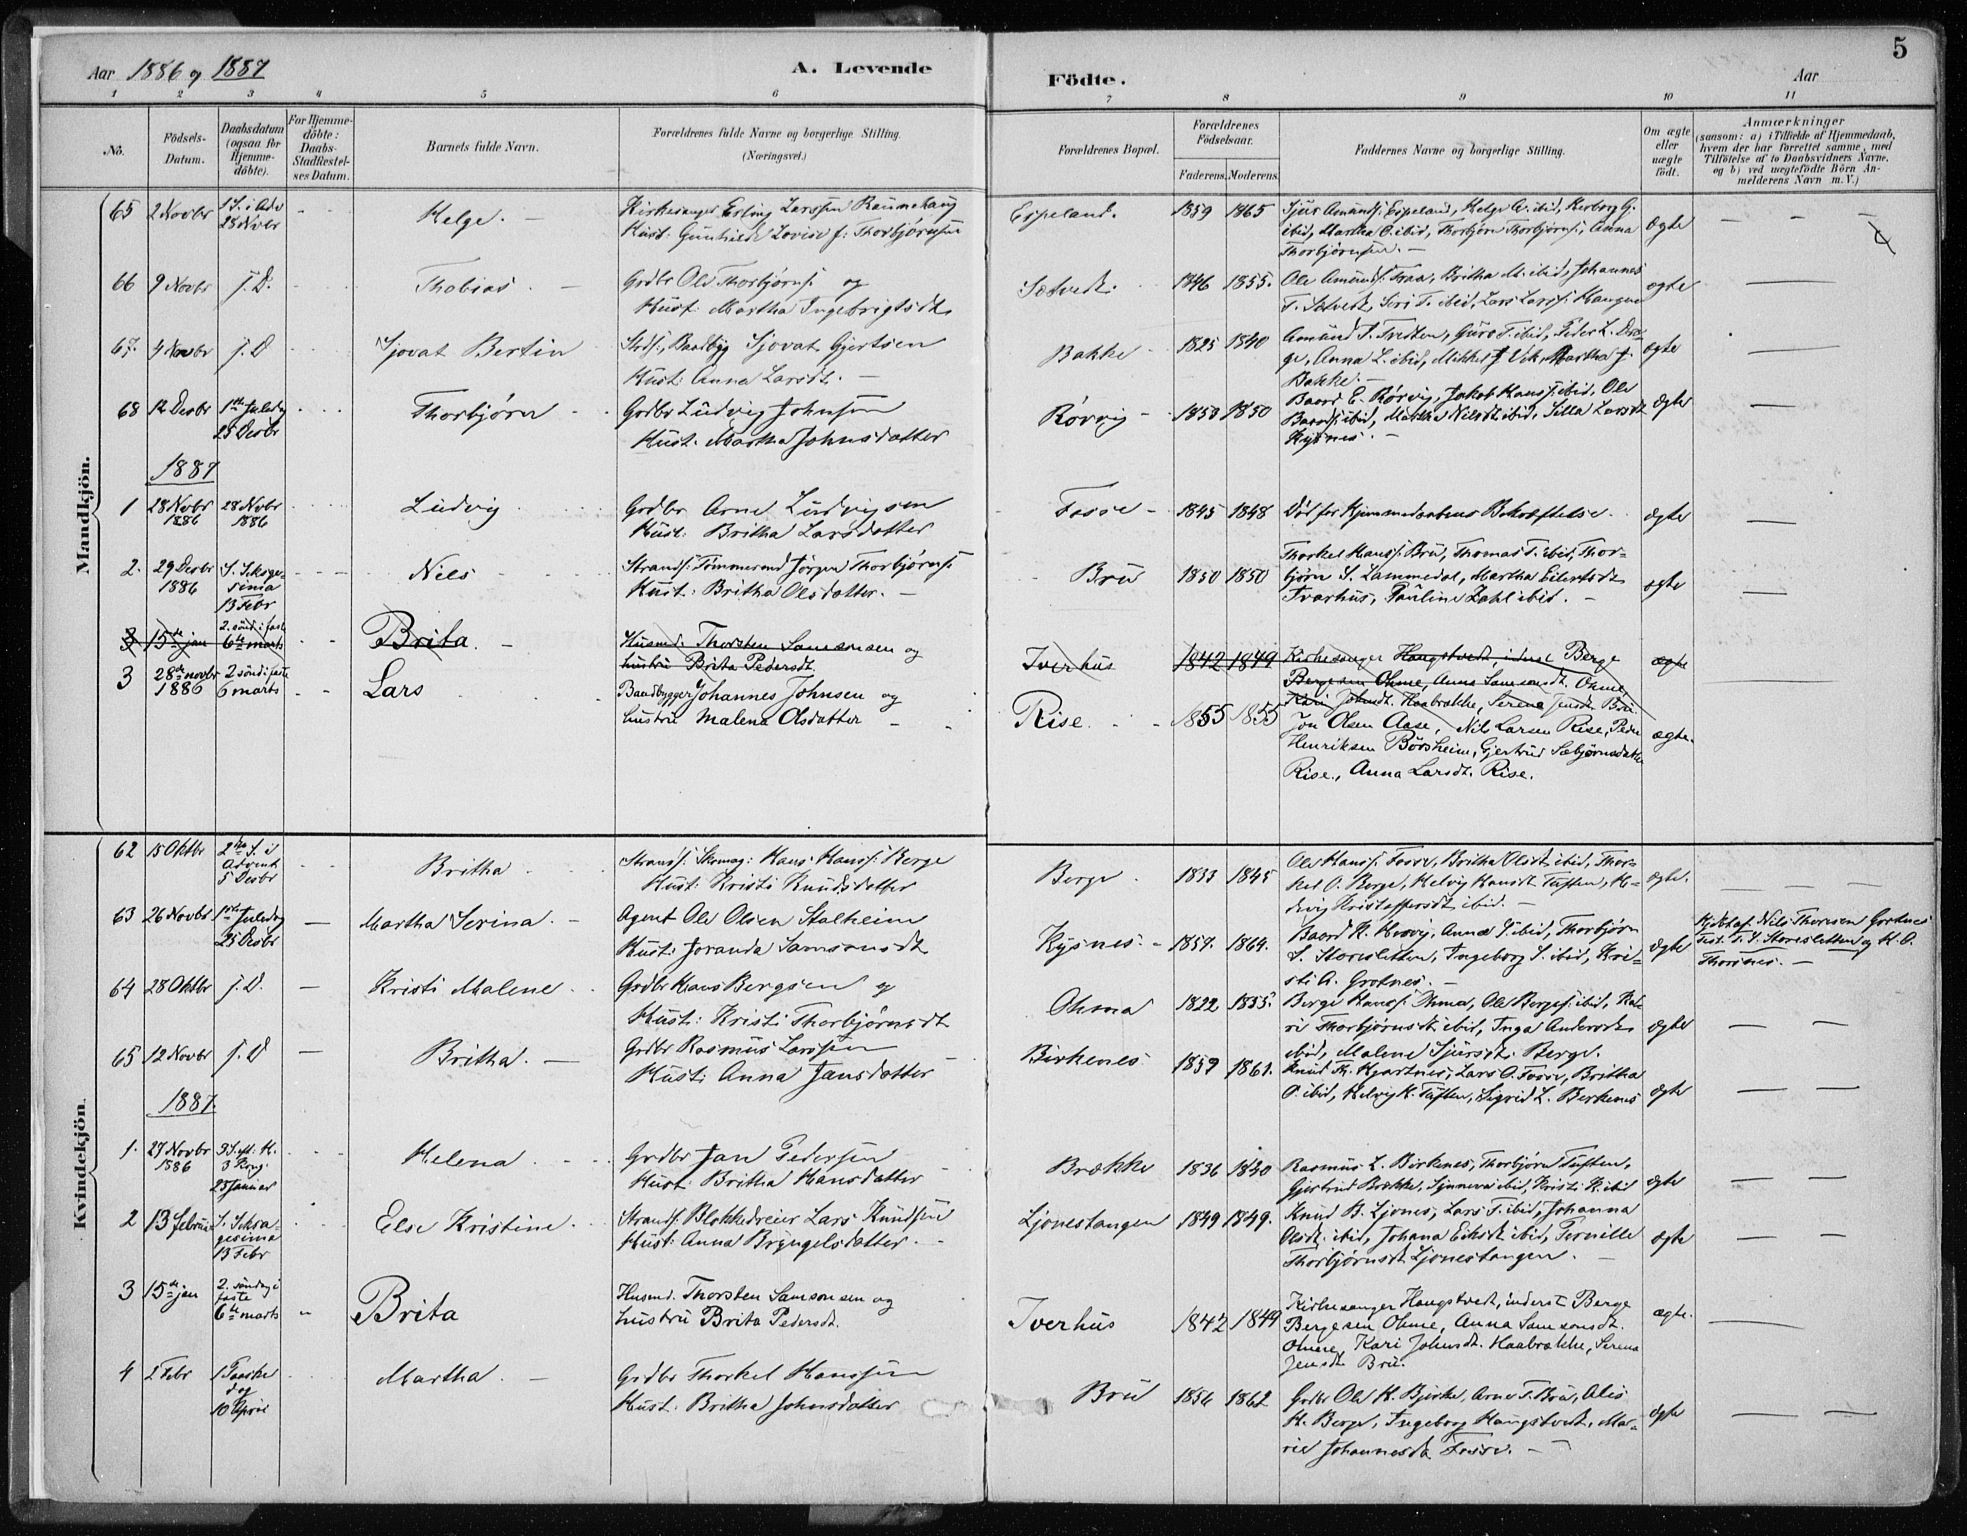 5
Aar 1886 og 1887
A. Levende
Födte.
Aar
1 2 3 4 5 6 7 8 9 10 11
Nö.
Födsels-
Datum.
Daabsdatum
(ogsaa for
Hjemme-
döbte).
For Hjemme-
döbte:
Daabs-
Stadfæstel-
ses Datum.
Barnets fulde Navn.
Forældrenes fulde Navne og borgerlige Stilling.
(Næringsvei.)
Forældrenes Bopæl.
Forældrenes
Födselsaar.
Faderens. Moderens.
Faddernes Navne og borgerlige Stilling.
Om ægte
eller
uægte
födt.
Anmærkninger
(saasom: a) i Tilfælde af Hjemmedaab,
hvem der har forrettet samme, med
Tilföielse af to Daabsvidners Navne,
og b) ved uægtefödte Börn An-
melderens Navn m. V.)
Mandkjön.
65 2 Novbr 1 S. i Adv 28 Novbr Helge.
Kirkesanger Erling Larssen Raunehaug
Hust: Gunhilde Lovise f: Thorbjørnsen
Espeland. 1859 1865
Sjur Amunds: Espeland, Helge A. ibid, Herborg G.
ibid, Martha O. ibid, Thorbjørn Thorbjørns:, Anna
Thorbjørnsen.
ægte
66 9 Novbr j. D. Thobias.
Grdbr Ole Thorbjørns: og
Hust: Martha Ingebrigtsdt.
Sætvedt. 1846 1855.
Ole Amunds: Traa, Britha M. ibid, Johannes
T. Sætvedt, Siri T. ibid, Lars Larss: Haugen
ægte
67. 4 Novbr j. D Sjovat Bertin
Strds:, Baadbyg Sjovat Gjertsen
Hust: Anna Larsdt.
Bakke 1825 1840
Amund T. Tvedten, Guro T. ibid, Peder L. Dra-
ge, Anna L. ibid, Mikkel J. Vik, Martha J.
Bakke.
ægte
68 12 Decbr 1ste Juledag 25 Decbr Thorbjørn
Grdbr Ludvig Johnsen
Hust: Martha Johnsdatter
Rørvig 1850 1850
Baard E. Rørvig, Jakob Hanss: ibid, Ole
Baards: ibid, Martha Nilsdt ibid, Silla Larsdt
Kysnes.
ægte
1887
1 28 Novbr 1886 28 Novbr 1886 Ludvig
Grdbr Arne Ludvigsen
Hust: Britha Larsdatter
Fosse 1845 1848
Død før Hjemmedaabens Bekræftelse.
ægte
2. 29 Decbr 1886 S. Seksagesima 13 Febr Nils
Strands: Tømmermd Jørgen Thorbjørns:
Hust: Britha Olsdatter.
Bru 1850 1850
Thorkel Hanss: Bru, Thomas T. ibid, Thor-
bjørn S. Lammedal, Martha Eilertsdt
Tvarhus, Pauline Zahl ibid.
ægte
3 15de jan 2. sönd i faste 6te marts Brita
Husmd. Thorsten Samsonsen og
hustru Brita Pedersdt.
Iverhus 1842 1849
Kirkesanger Haugstvedt, inderst Berge
Bergesen Ohme, Anna Samsonsdt. Ohme,
Kari Johnsdt. Haabrække, Serena Jensdt. Bru.
ægte
3 28de novbr 1886 2 sönd i faste 6 marts Lars
Baadbygger Johannes Johnsen og
hustru Malena Olsdatter
Rise. 1855 1855
Jon Olsen Aase, Nils Larsen Rise, Peder
Henriksen Börsheim, Gjertrud Sæbjørnsdatter
Rise., Anna Larsdt. Rise.
ægte.
Kvindekjön.
62 15 Oktbr 2den S. i Advent 5 Decbr Britha
Strands: Skomag: Hans Hanss: Berge
Hust: Kristi Knudsdatter
Berge. 1833 1845
Ole Hanss: Fosse, Britha Olsdt ibid, Thor-
kel O. Berge, Helvig Hansdt Tuften, He-
dvig Kristoffersdt ibid.
ægte.
63 26 Novbr 1ste Juledag 25 Decbr Martha Serina.
Agent Ole Olsen Stalheim
Hust: Joranda Samsonsdt
Kysnes. 1857. 1864.
Baard K. Kvovig, Anna S. ibid, Thorbjørn
S. Storesletten, Ingeborg S. ibid, Kri-
sti A. Grotnes.
ægte
Hj.døbt af Nils Thoresen Grotnes
Test. T. S. Storesletten og H. O.
Thorsnes.
64 28 Oktbr j. D. Kristi Malene
Grdbr Hans Bergsen og
Hust: Kristi Thorbjørnsdt
Ohma 1822 1835.
Berge Hanss: Ohma, Ole Berges: ibid, Ka-
ri Thorbjørnsdt ibid, Inga Andersdt
ibid, Malene Sjursdt. Berge.
ægte
65 12 Novbr j. D Britha.
Grdbr Rasmus Larssen
Hust: Anna Jansdatter
Birkenes 1859 1861.
Knud Th. Hjartnes, Lars O. Fosse, Britha
O. ibid, Helvig K. Tuften, Sigrid L. Berkenes
ægte
1887.
1. 27 Novbr 1886 3 S. eft. H. 3 Kong. 23 Januar Helena
Grdbr Jan Pedersen
Hust: Britha Hansdatter
Brække 1836 1840
Rasmus L. Birkenes, Thorbjørn Tuften,
Gjertrud Brække, Synneva ibid, Kristi K. ibid
ægte
2 13 Februar S. Seksagesima 13 Febr Else Kristine
Strands: Blokkedreier Lars Knudsen
Hust: Anna Bryngelsdatter.
Ljonestangen 1849 1849.
Knud B. Ljones, Lars T. ibid, Johanna
Olsdt. ibid, Johana Eriksdt ibid, Pernille
Thorbjørnsdt Ljonestangen.
ægte
3 15de jan 2. söndag i faste 6te marts Brita
Husmd. Thorsten Samsonsen og
hustru Brita Pedersdt.
Iverhus 1842 1849
Kirkesanger Haugstvedt, inderst Berge
Bergesen Ohme, Anna Samsonsdt.
Ohme, Kari Johnsdt. Haabrække, Serena
Jensdt. Bru.
ægte.
4 2 Febr 1 Paaskedag 10 April Martha.
Grdbr Thorkel Hanssen
Hust: Britha Johnsdatter
Bru 1856 1862
Grdbr Ole H. Bjerke, Arne T. Bru, Alis
H. Berge, Ingeborg Haugstvedt, Ma-
rie Johannesdt Fosse.
ægte